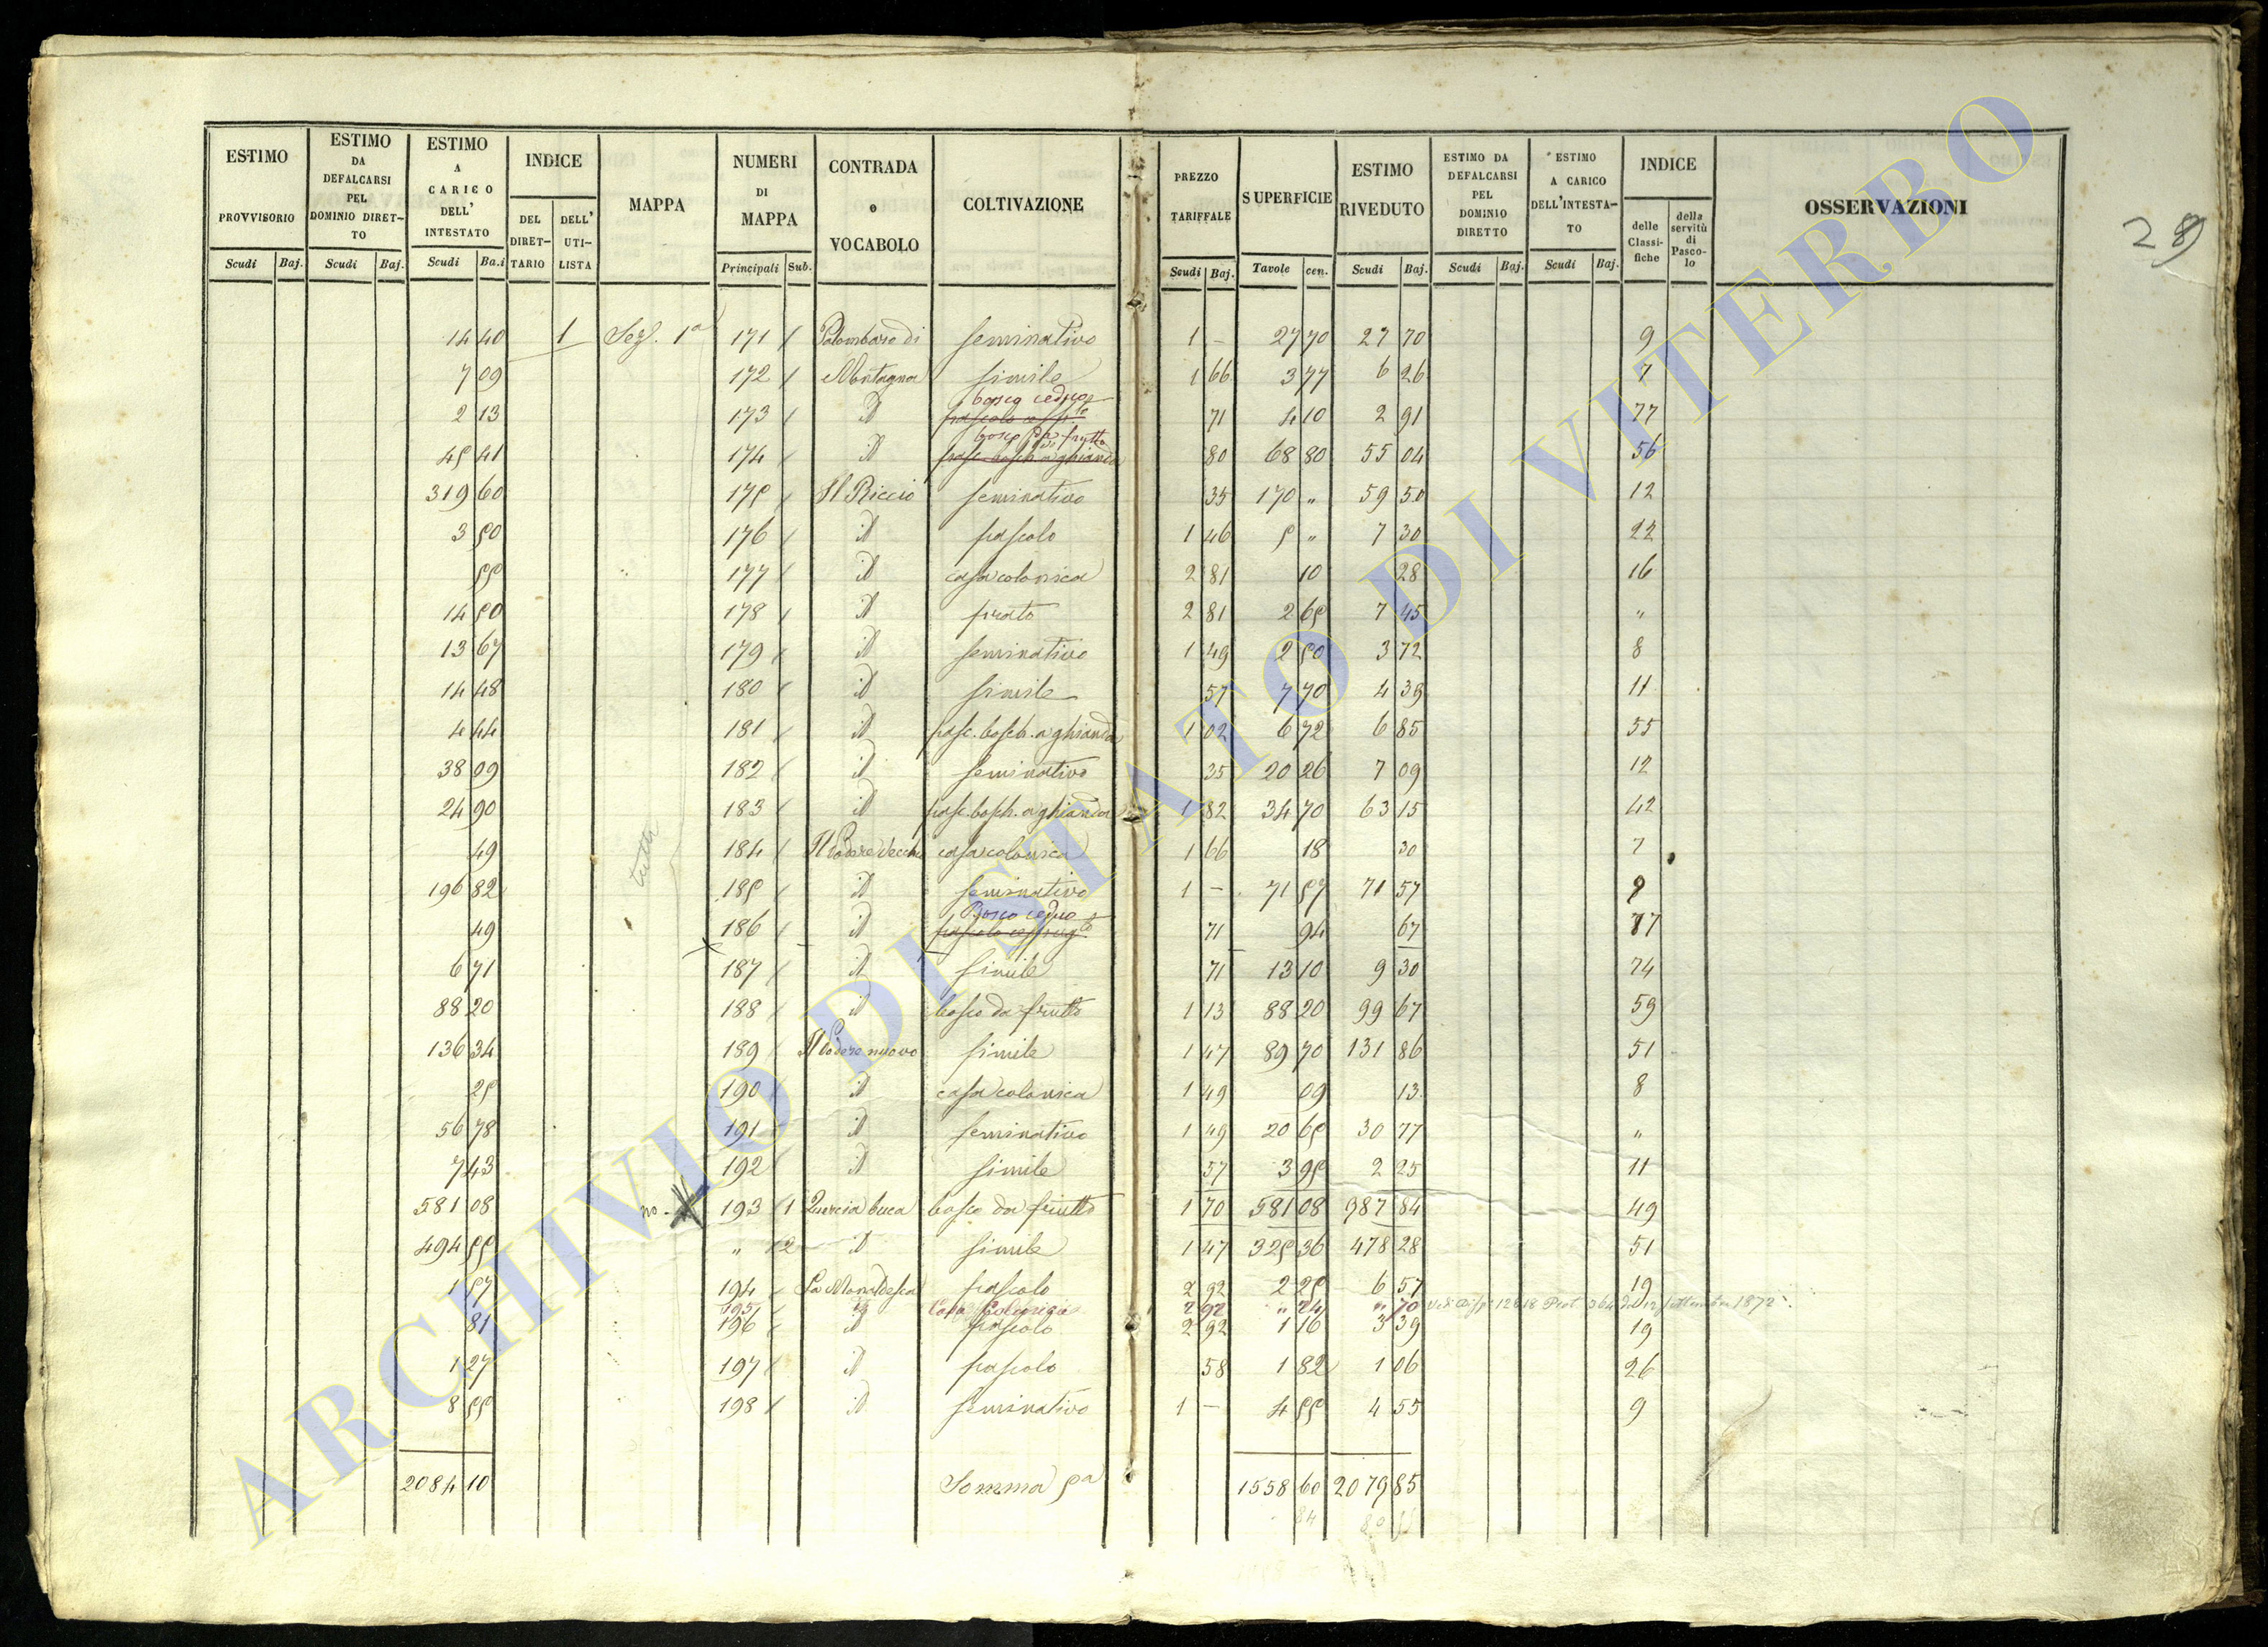 ESTIMO PROVVISORIO | ESTIMO DA DEFALCARSI PEL DOMINIO DIRETTO | ESTIMO A CARICO DELL' INTESTATO | INDICE DEL DIRETTARIO | DELL' UTILISTA | MAPPA | NUMERI DI MAPPA | CONTRADA o VOCABOLO | COLTIVAZIONE | PREZZO TARIFFALE | SUPERFICIE | ESTIMO RIVEDUTO | ESTIMO DA DEFALCARSI PEL DOMINIO DIRETTO | ESTIMO A CARICO DELL'INTESTATO | INDICE delle Classifiche | della servitù di Pascolo | OSSERVAZIONI
28
Scudi Baj. Scudi Baj. Scudi Ba.i Principali Sub. Scudi Baj. Tavole cen. Scudi Baj. Scudi Baj. Scudi Baj.
14 40 1 Sez. 1a 171 Palombaro di seminativo 1 – 27 70 27 70 9
7 09 172 Montagna simile 1 66 3 77 6 26 7
bosco ceduo
2 13 173 id 71 4 10 2 91 77
bosco da frutto
45 41 174 id pasc. bosch. a ghianda 80 68 80 55 04 56
319 60 175 Il Riccio seminativo 35 170 " 59 50 12
3 50 176 id pascolo 1 46 5 " 7 30 22
55 177 id casa colonica 2 81 10 28 16
14 50 178 id prato 2 81 2 65 7 45 "
13 67 179 id seminativo 1 49 2 50 3 72 8
14 48 180 id simile 57 7 70 4 39 11
4 44 181 id pasc. bosch. a ghianda 1 02 6 72 6 85 55
38 09 182 id seminativo 35 20 26 7 09 12
24 90 183 id pasc. bosch. a ghianda 1 82 34 70 63 15 42
tutti
49 184 Il Podere Vecchio casa colonica 1 66 18 30 7
196 82 185 id seminativo 1 – 71 57 71 57 9
Bosco ceduo
49 186 id 71 94 67 77
6 71 187 id simile 71 13 10 9 30 74
88 20 188 id bosco da frutto 1 13 88 20 99 67 59
136 34 189 Il Podere nuovo simile 1 47 89 70 131 86 51
25 190 id casa colonica 1 49 09 13 8
56 78 191 id seminativo 1 49 20 65 30 77 "
7 43 192 id simile 57 3 95 2 25 11
581 08 no 193 1 Quercia buca bosco da frutto 1 70 581 08 987 84 49
494 55 " 2 id simile 1 47 325 36 478 28 51
1 57 194 La Monaldesca pascolo 2 92 2 25 6 57 19
195 id Casa Colonica 2 92 " 24 " 70
81 196 id pascolo 2 92 1 16 3 39 19
1 27 197 id pascolo 58 1 82 1 06 26
8 55 198 id seminativo 1 – 4 55 4 55 9
2084 10 Somma 5a 1558 60 2079 85
84
ARCHIVIO DI STATO DI VITERBO